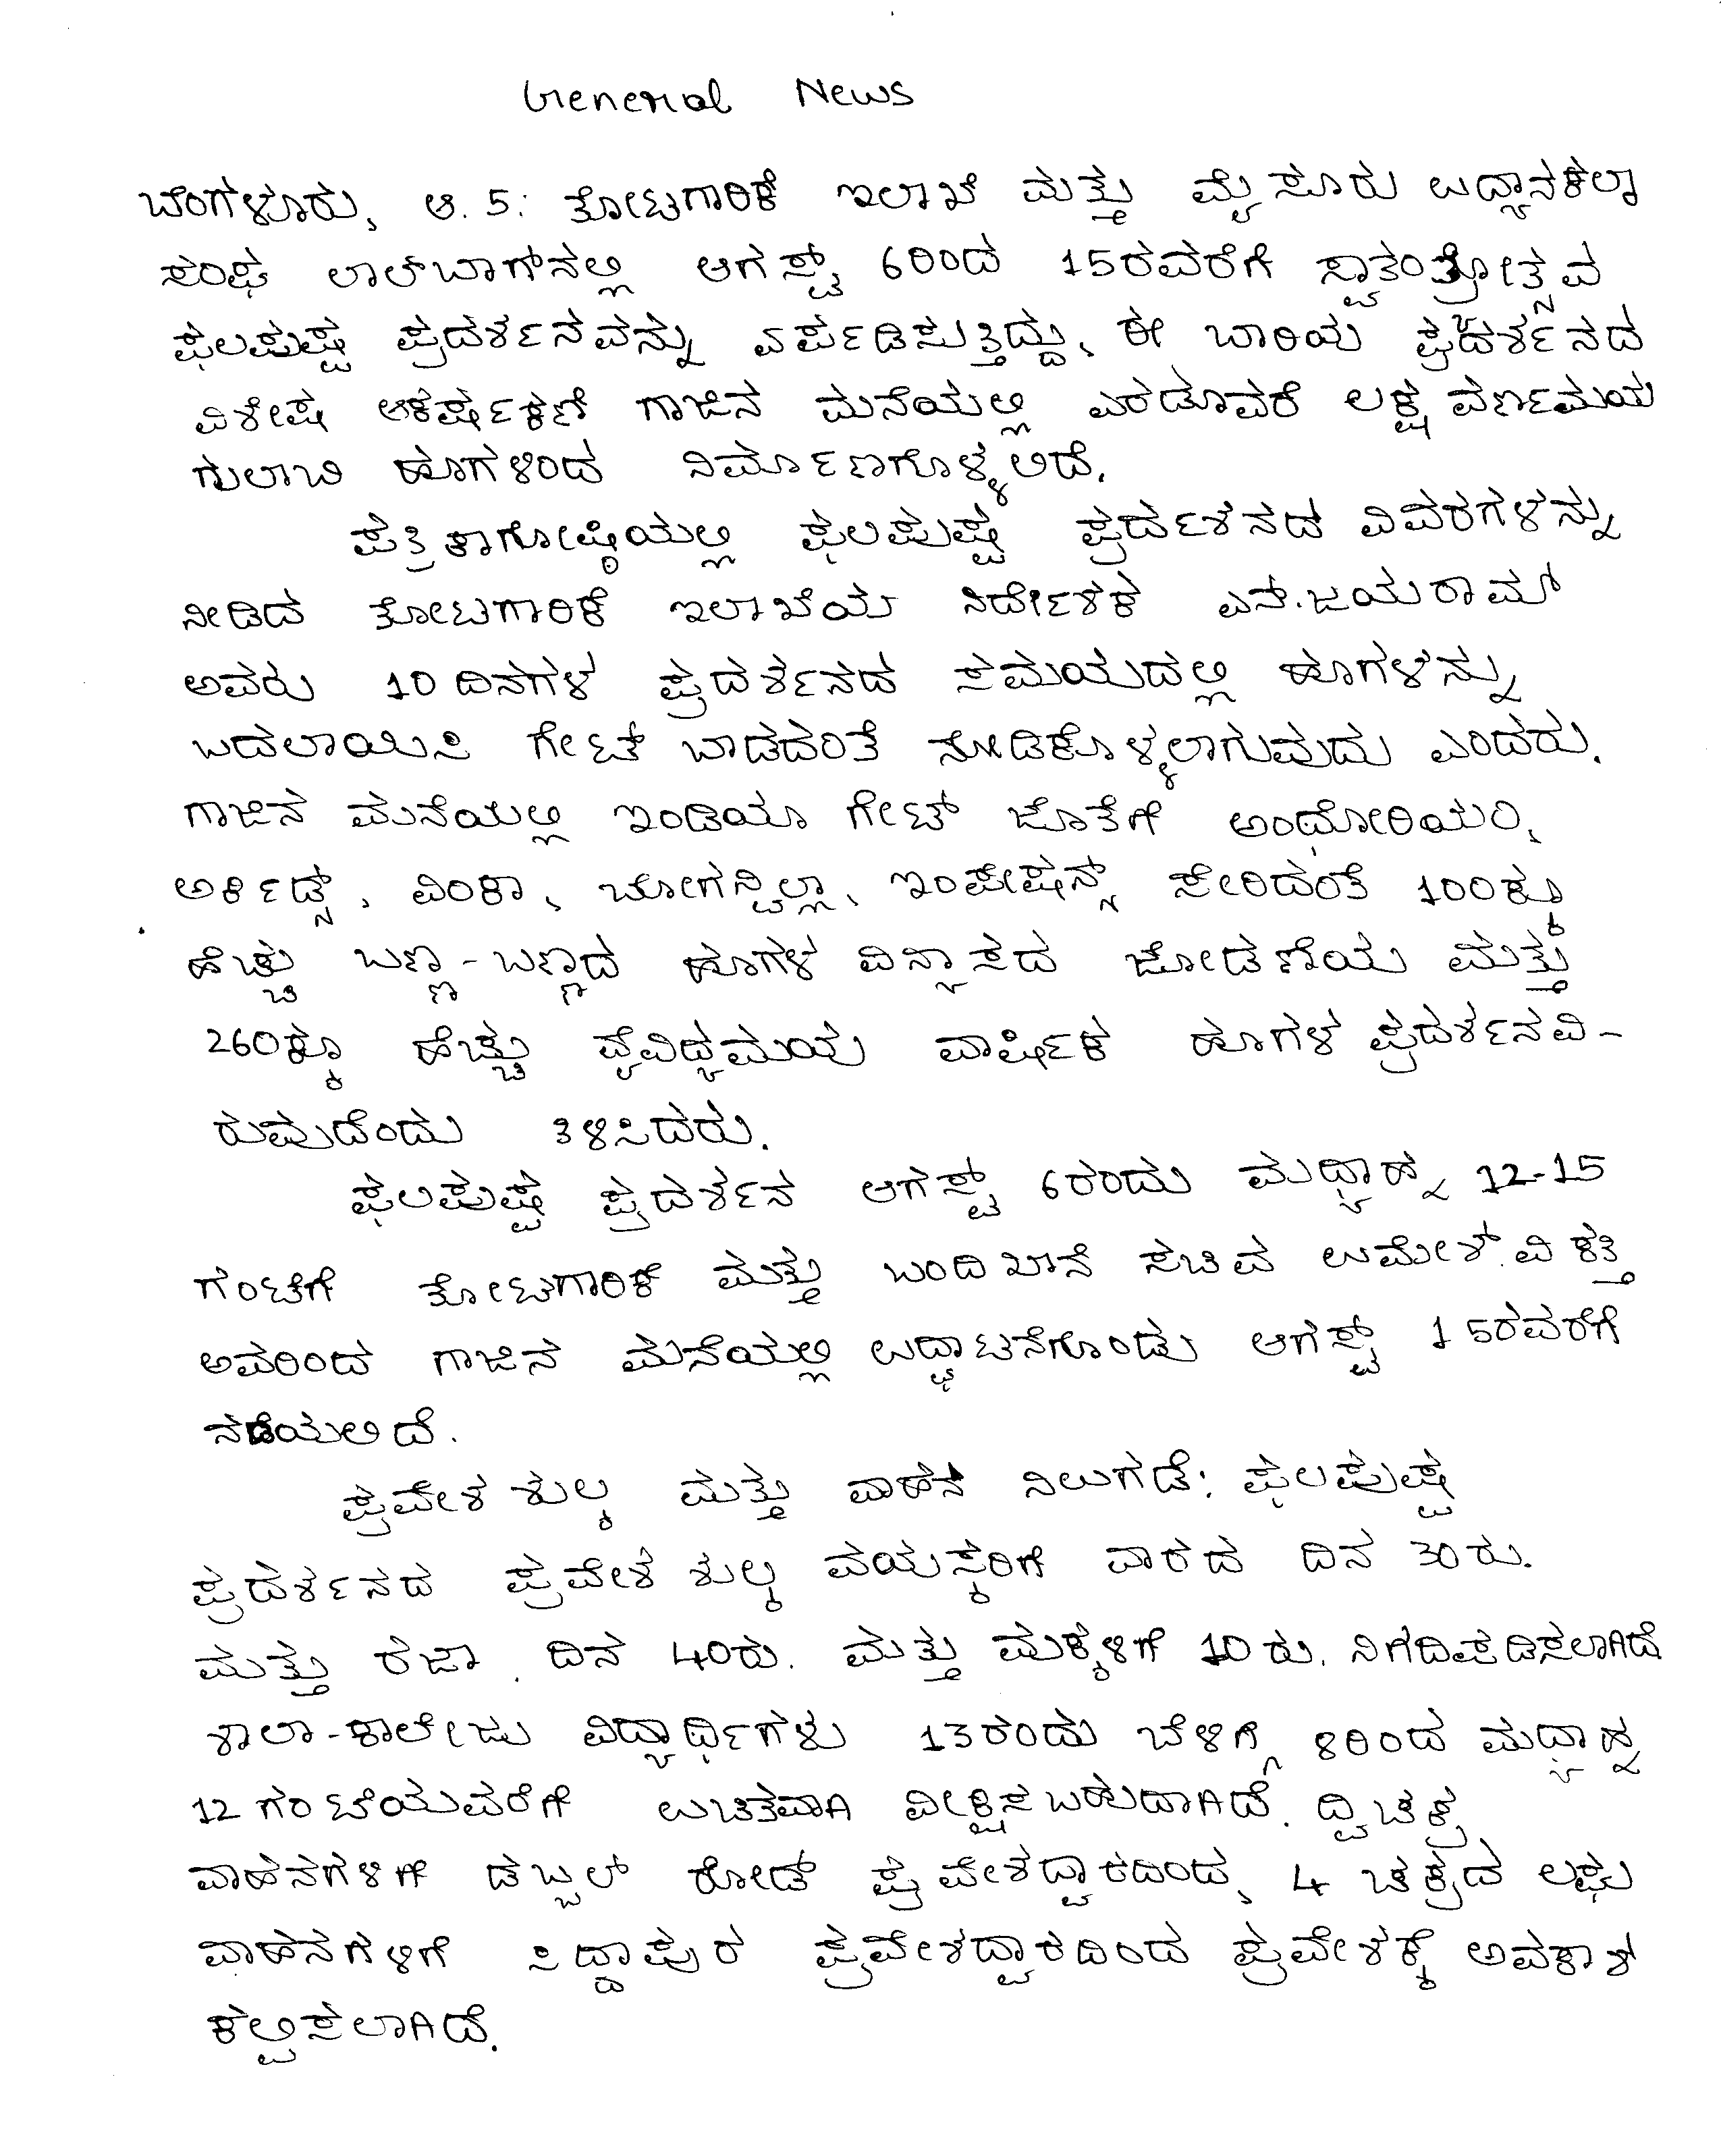 General News
ಬೆಂಗಳೂರು, ಆ. 5: ತೋಟಗಾರಿಕೆ ಇಲಾಖೆ ಮತ್ತು ಮೈಸೂರು ಉದ್ಯಾನಕಲಾ
ಸಂಘ ಲಾಲ್‌ಬಾಗ್‌ನಲ್ಲಿ ಆಗಸ್ಟ್ 6ರಿಂದ 15ರವರೆಗೆ ಸ್ವಾತಂತ್ರೋತ್ಸವ
ಫಲಪುಷ್ಪ ಪ್ರದರ್ಶನವನ್ನು ಏರ್ಪಡಿಸುತ್ತಿದ್ದು, ಈ ಬಾರಿಯ ಪ್ರದರ್ಶನದ
ವಿಶೇಷ ಆಕರ್ಷಕಣೆ ಗಾಜಿನ ಮನೆಯಲ್ಲಿ ಎರಡೂವರೆ ಲಕ್ಷ ವರ್ಣಮಯ
ಗುಲಾಬಿ ಹೂಗಳಿಂದ ನಿರ್ಮಾಣಗೊಳ್ಳಲಿದೆ.
ಪತ್ರಿಕಾಗೋಷ್ಠಿಯಲ್ಲಿ ಫಲಪುಷ್ಪ ಪ್ರರ್ದಶನದ ವಿವರಗಳನ್ನು
ನೀಡಿದ ತೋಟಗಾರಿಕೆ ಇಲಾಖೆಯ ನಿರ್ದೇಶಕ ಎನ್.ಜಯರಾಮ್
ಅವರು 10 ದಿನಗಳ ಪ್ರದರ್ಶನದ ಸಮಯದಲ್ಲಿ ಹೂಗಳನ್ನು
ಬದಲಾಯಿಸಿ ಗೇಟ್ ಬಾಡದಂತೆ ನೋಡಿಕೊಳ್ಳಲಾಗುವುದು ಎಂದರು.
ಗಾಜಿನ ಮನೆಯಲ್ಲಿ ಇಂಡಿಯಾ ಗೇಟ್ ಜೊತೆಗೆ ಅಂಥೋರಿಯಂ,
ಅರ್ಕಿಡ್ಸ್, ವಿಂಕಾ, ಬೋಗನ್ವಿಲ್ಲಾ, ಇಂಪೇಷನ್ಸ್ ಸೇರಿದಂತೆ 100ಕ್ಕೂ
ಹೆಚ್ಚು ಬಣ್ಣ-ಬಣ್ಣದ ಹೂಗಳ ವಿನ್ಯಾಸದ ಜೋಡಣೆಯ ಮತ್ತು
260ಕ್ಕೂ ಹೆಚ್ಚು ವೈವಿಧ್ಯಮಯ ವಾರ್ಷಿಕ ಹೂಗಳ ಪ್ರದರ್ಶನವಿ-
ರುವುದೆಂದು ತಿಳಿಸಿದರು.
ಫಲಪುಷ್ಪ ಪ್ರದರ್ಶನ ಆಗಸ್ಟ್ 6ರಂದು ಮಧ್ಯಾಹ್ನ 12-15
ಗಂಟೆಗೆ ತೋಟಗಾರಿಕೆ ಮತ್ತು ಬಂದಿಖಾನೆ ಸಚಿವ ಉಮೇಶ್.ವಿ ಕತ್ತಿ
ಅವರಿಂದ ಗಾಜಿನ ಮನೆಯಲ್ಲಿ ಉದ್ಘಾಟನೆಗೊಂಡು ಆಗಸ್ಟ್ 15ರವರೆಗೆ
ನಡೆಯಲಿದೆ.
ಪ್ರವೇಶ ಶುಲ್ಕ ಮತ್ತು ವಾಹನ ನಿಲುಗಡೆ: ಫಲಪುಷ್ಪ
ಪ್ರದರ್ಶನದ ಪ್ರವೇಶ ಶುಲ್ಕ ವಯಸ್ಕರಿಗೆ ವಾರದ ದಿನ 30ರು.
ಮತ್ತು ರಜಾ ದಿನ 40ರು. ಮತ್ತು ಮಕ್ಕಳಿಗೆ 10 ರು. ನಿಗದಿಪಡಿಸಲಾಗಿದೆ
ಶಾಲಾ-ಕಾಲೇಜು ವಿದ್ಯಾರ್ಥಿಗಳು 13ರಂದು ಬೆಳಿಗ್ಗೆ 8ರಿಂದ ಮಧ್ಯಾಹ್ನ
12 ಗಂಟೆಯವರೆಗೆ ಉಚಿತವಾಗಿ ವೀಕ್ಷಿಸಬಹುದಾಗಿದೆ. ದ್ವಿಚಕ್ರ
ವಾಹನಗಳಿಗೆ ಡಬ್ಬಲ್ ರೋಡ್ ಪ್ರವೇಶದ್ವಾರದಿಂದ, 4 ಚಕ್ರದ ಲಘು
ವಾಹನಗಳಿಗೆ ಸಿದ್ದಾಪುರ ಪ್ರವೇಶದ್ವಾರದಿಂದ ಪ್ರವೇಶಕ್ಕೆ ಅವಕಾಶ
ಕಲ್ಪಿಸಲಾಗಿದೆ.